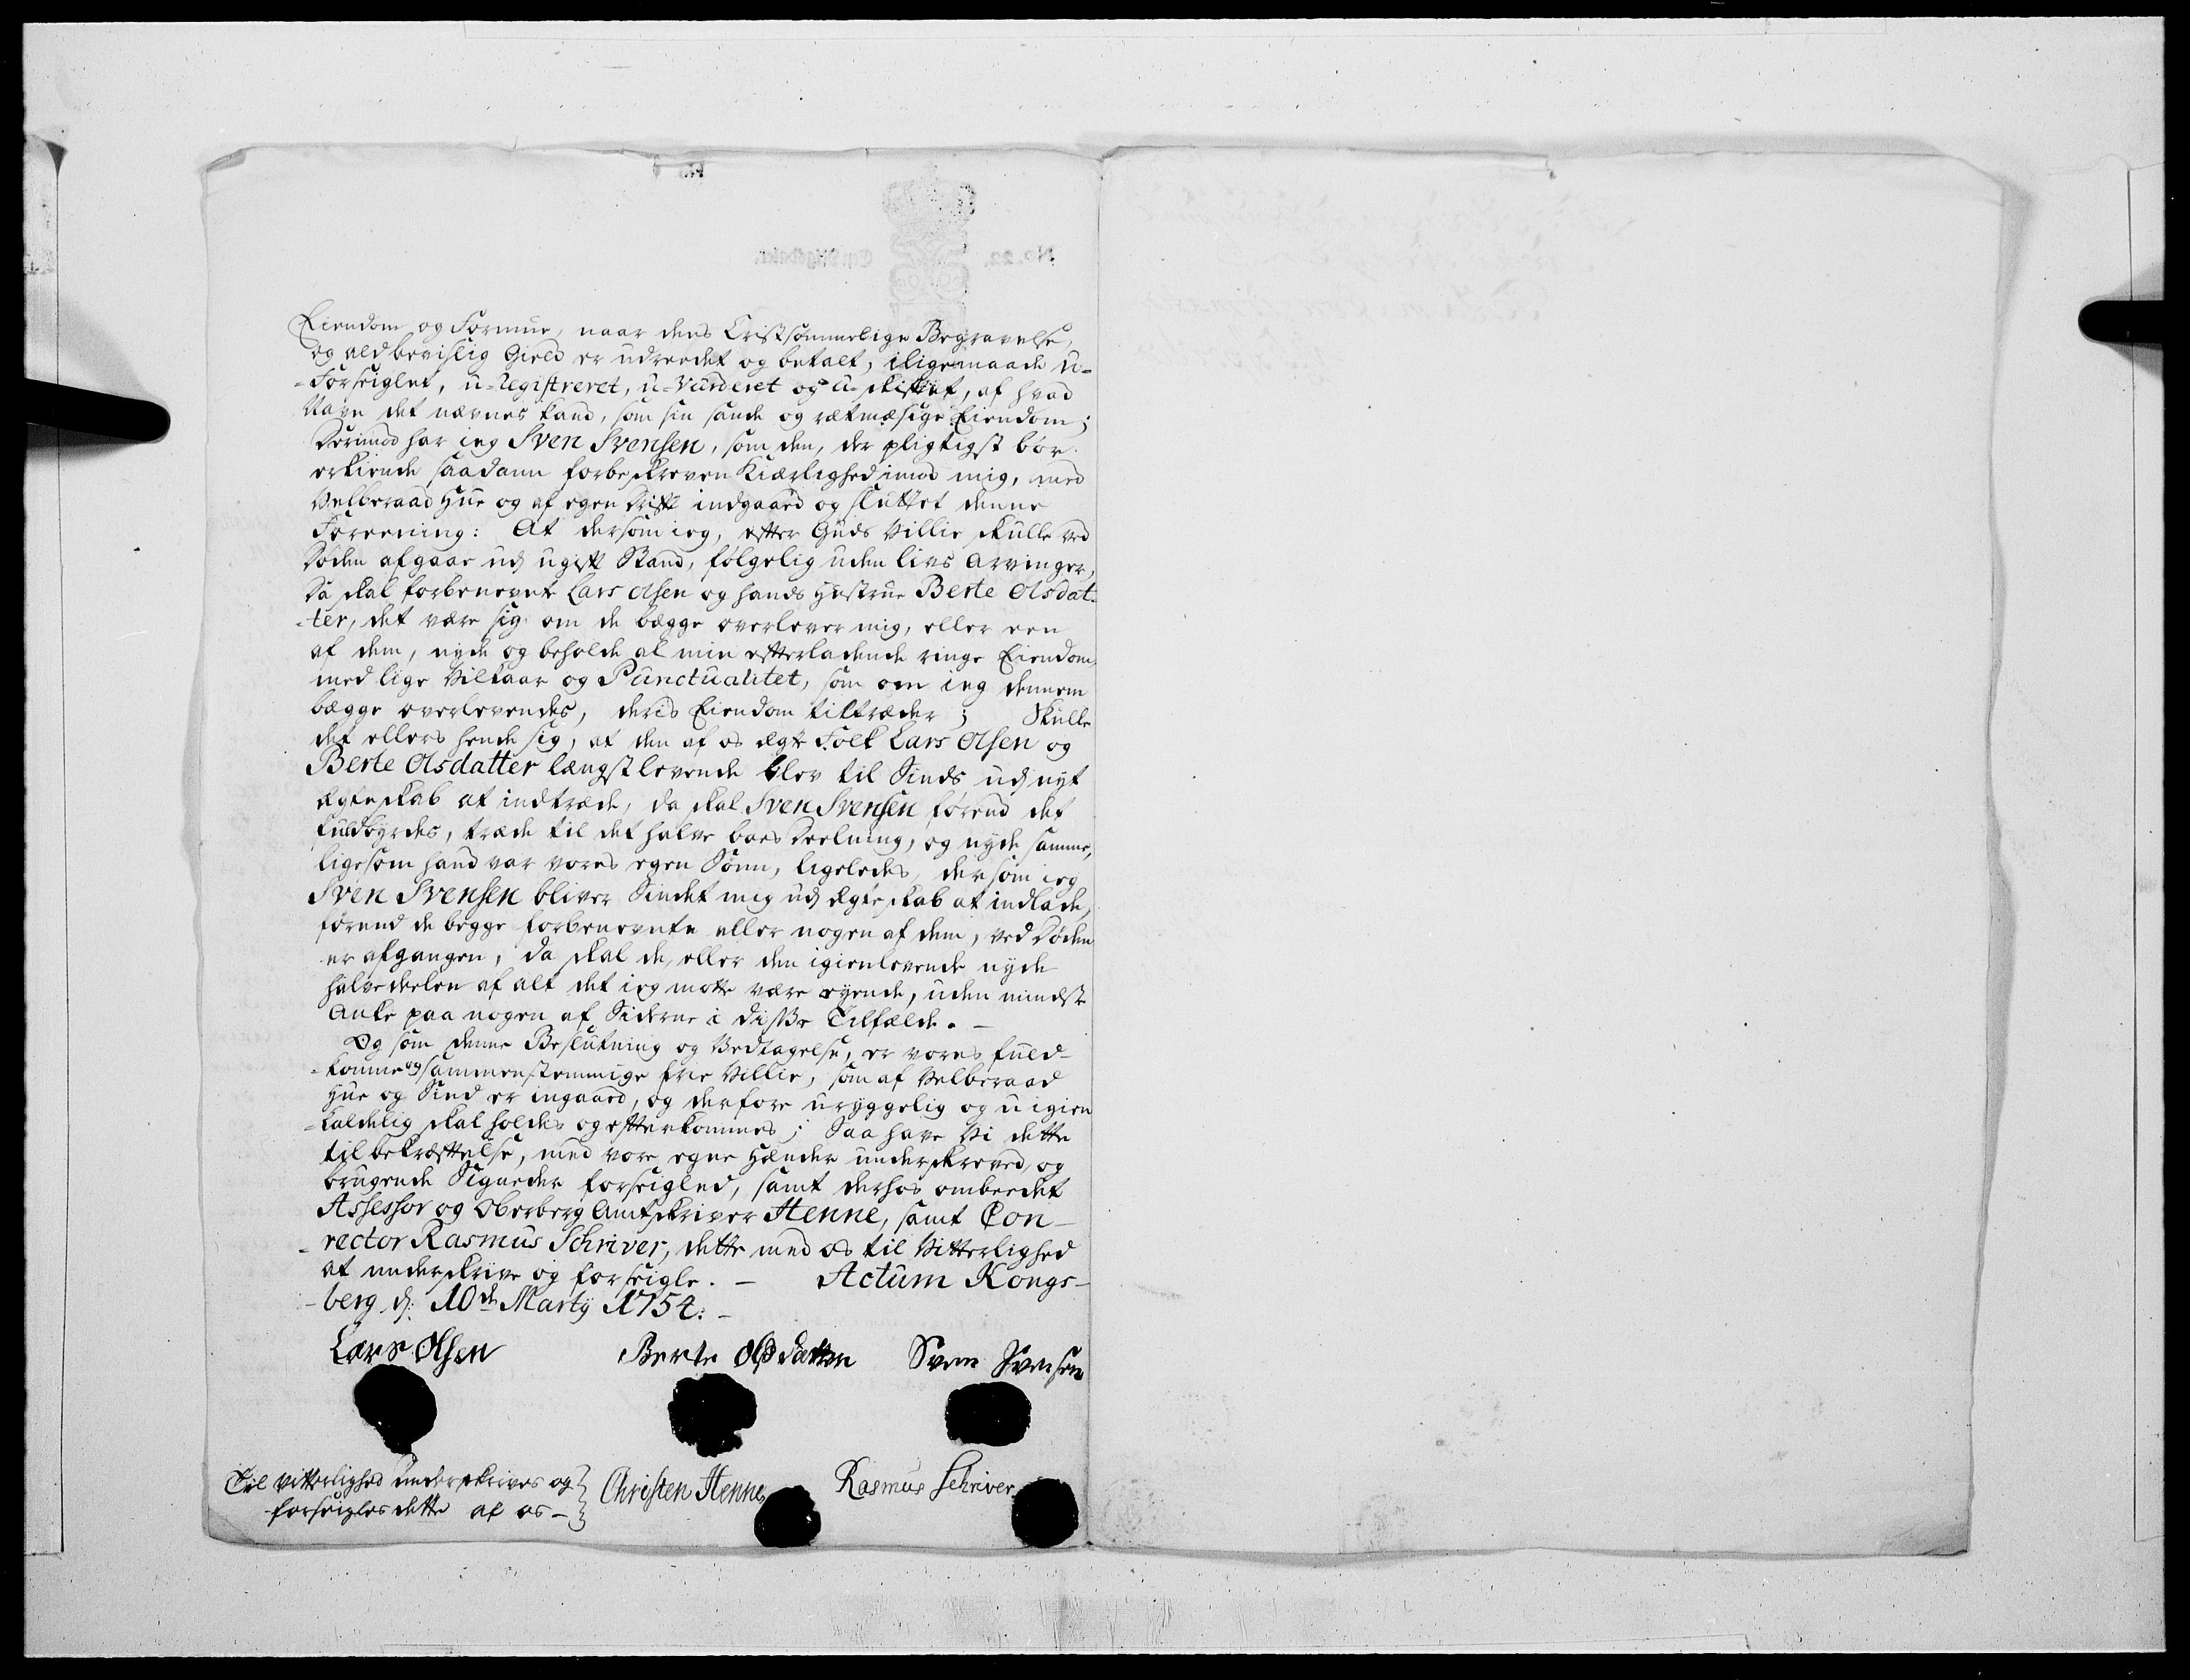 Eiendom og Formue, naar dens Cristsømmelige Begravelse,
og ald bevislig Gield er udreedet og betalt, iligemaade u-
-Forseiglet, u-Registreret, u-Vurderet og u-skiftet, af hvad
Navn det nævnes kand, som sin sande og rætmæsige Eiendom;
Derimod har ieg Sven Svensen, som den, der pligtigst bør
erkiende saadann forbeskreven Kiærlighed imod mig, med
Velberaad Hue og af egen Drift indgaaed og sluttet denne
Foreening: At dersom ieg, efter Guds Villie skulle ved
Døden afgaae udj ugift Stand, følgelig uden livs Arvinger,
Da skal forbenevnte Lars Olsen og hands Hustrue Berte Olsdat-
-ter, det være sig om de begge overlever mig, eller een
af dem, nyde og beholde al min efterladende ringe Eiendom,
med lige Vilkaar og Punctualitet, som om ieg dennem
begge overlevendes, deris Eiendom tiltræder; Skulle
det ellers hende sig, at den af os Egte Folk Lars Olsen og
Berte Olsdatter længstlevende blev til Sinds udj nyt
Egteskab at indtræde, da skal Sven Svensen førend det
fuldbyrdes, træde til det halve boes Deelning, og nyde samme,
ligesom hand var vores egen Sønn, ligeledes, dersom ieg
Sven Svensen bliver Sindet mig udj Egteskab at indlade,
førend de begge forbenevnte eller nogen af dem, ved Døden
er afgangen, da skal de, eller den igienlevende nyde
halvedeelen af alt det ieg motte være eyende, uden mindste
Anke paa nogen af Siderne i disse Tilfælde. -
Og som denne Beslutning og Vedtagelse, er vores fuld-
-komne og sammenstemmige frie Villie, som af Velberaad
Hue og Sind er ingaaed, og derfore uryggelig og uigien
-kaldelig skal holdes og efterkommes; Saa have Vi dette
til bekræftelse, med vore egne Hænder underskreved, og
brugende Signeder forseigled, samt derhos ombeedet
Assessor og Oberberg Amtskriver Henne, samt Con-
-rector Rasmus Schriver, dette med os til Vitterlighed
at underskrive og forseigle. - Actum Kongs-
-berg d: 10de Martij 1754: -
Lars Olsen Berte Olsdatter Sven Svensen
Til vitterlighed underskrives og
forseigles dette af os - Christen Henne Rasmus Schriver